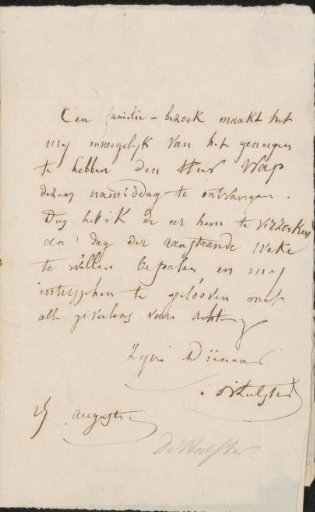 Een familie-bezoek maakt het
my onmogelyk van het genoegen
te hebben den Heer Wap
dezen namiddag te ontvangen.
Dus heb ik de eer hem te verzoeken
een dag der aanstaande weke
te willen bepalen en my
intusschen te gelooven met
alle gevoelens van achting
Zyn Dienaar
d'Hulster
25 Augusti
D'Hulster